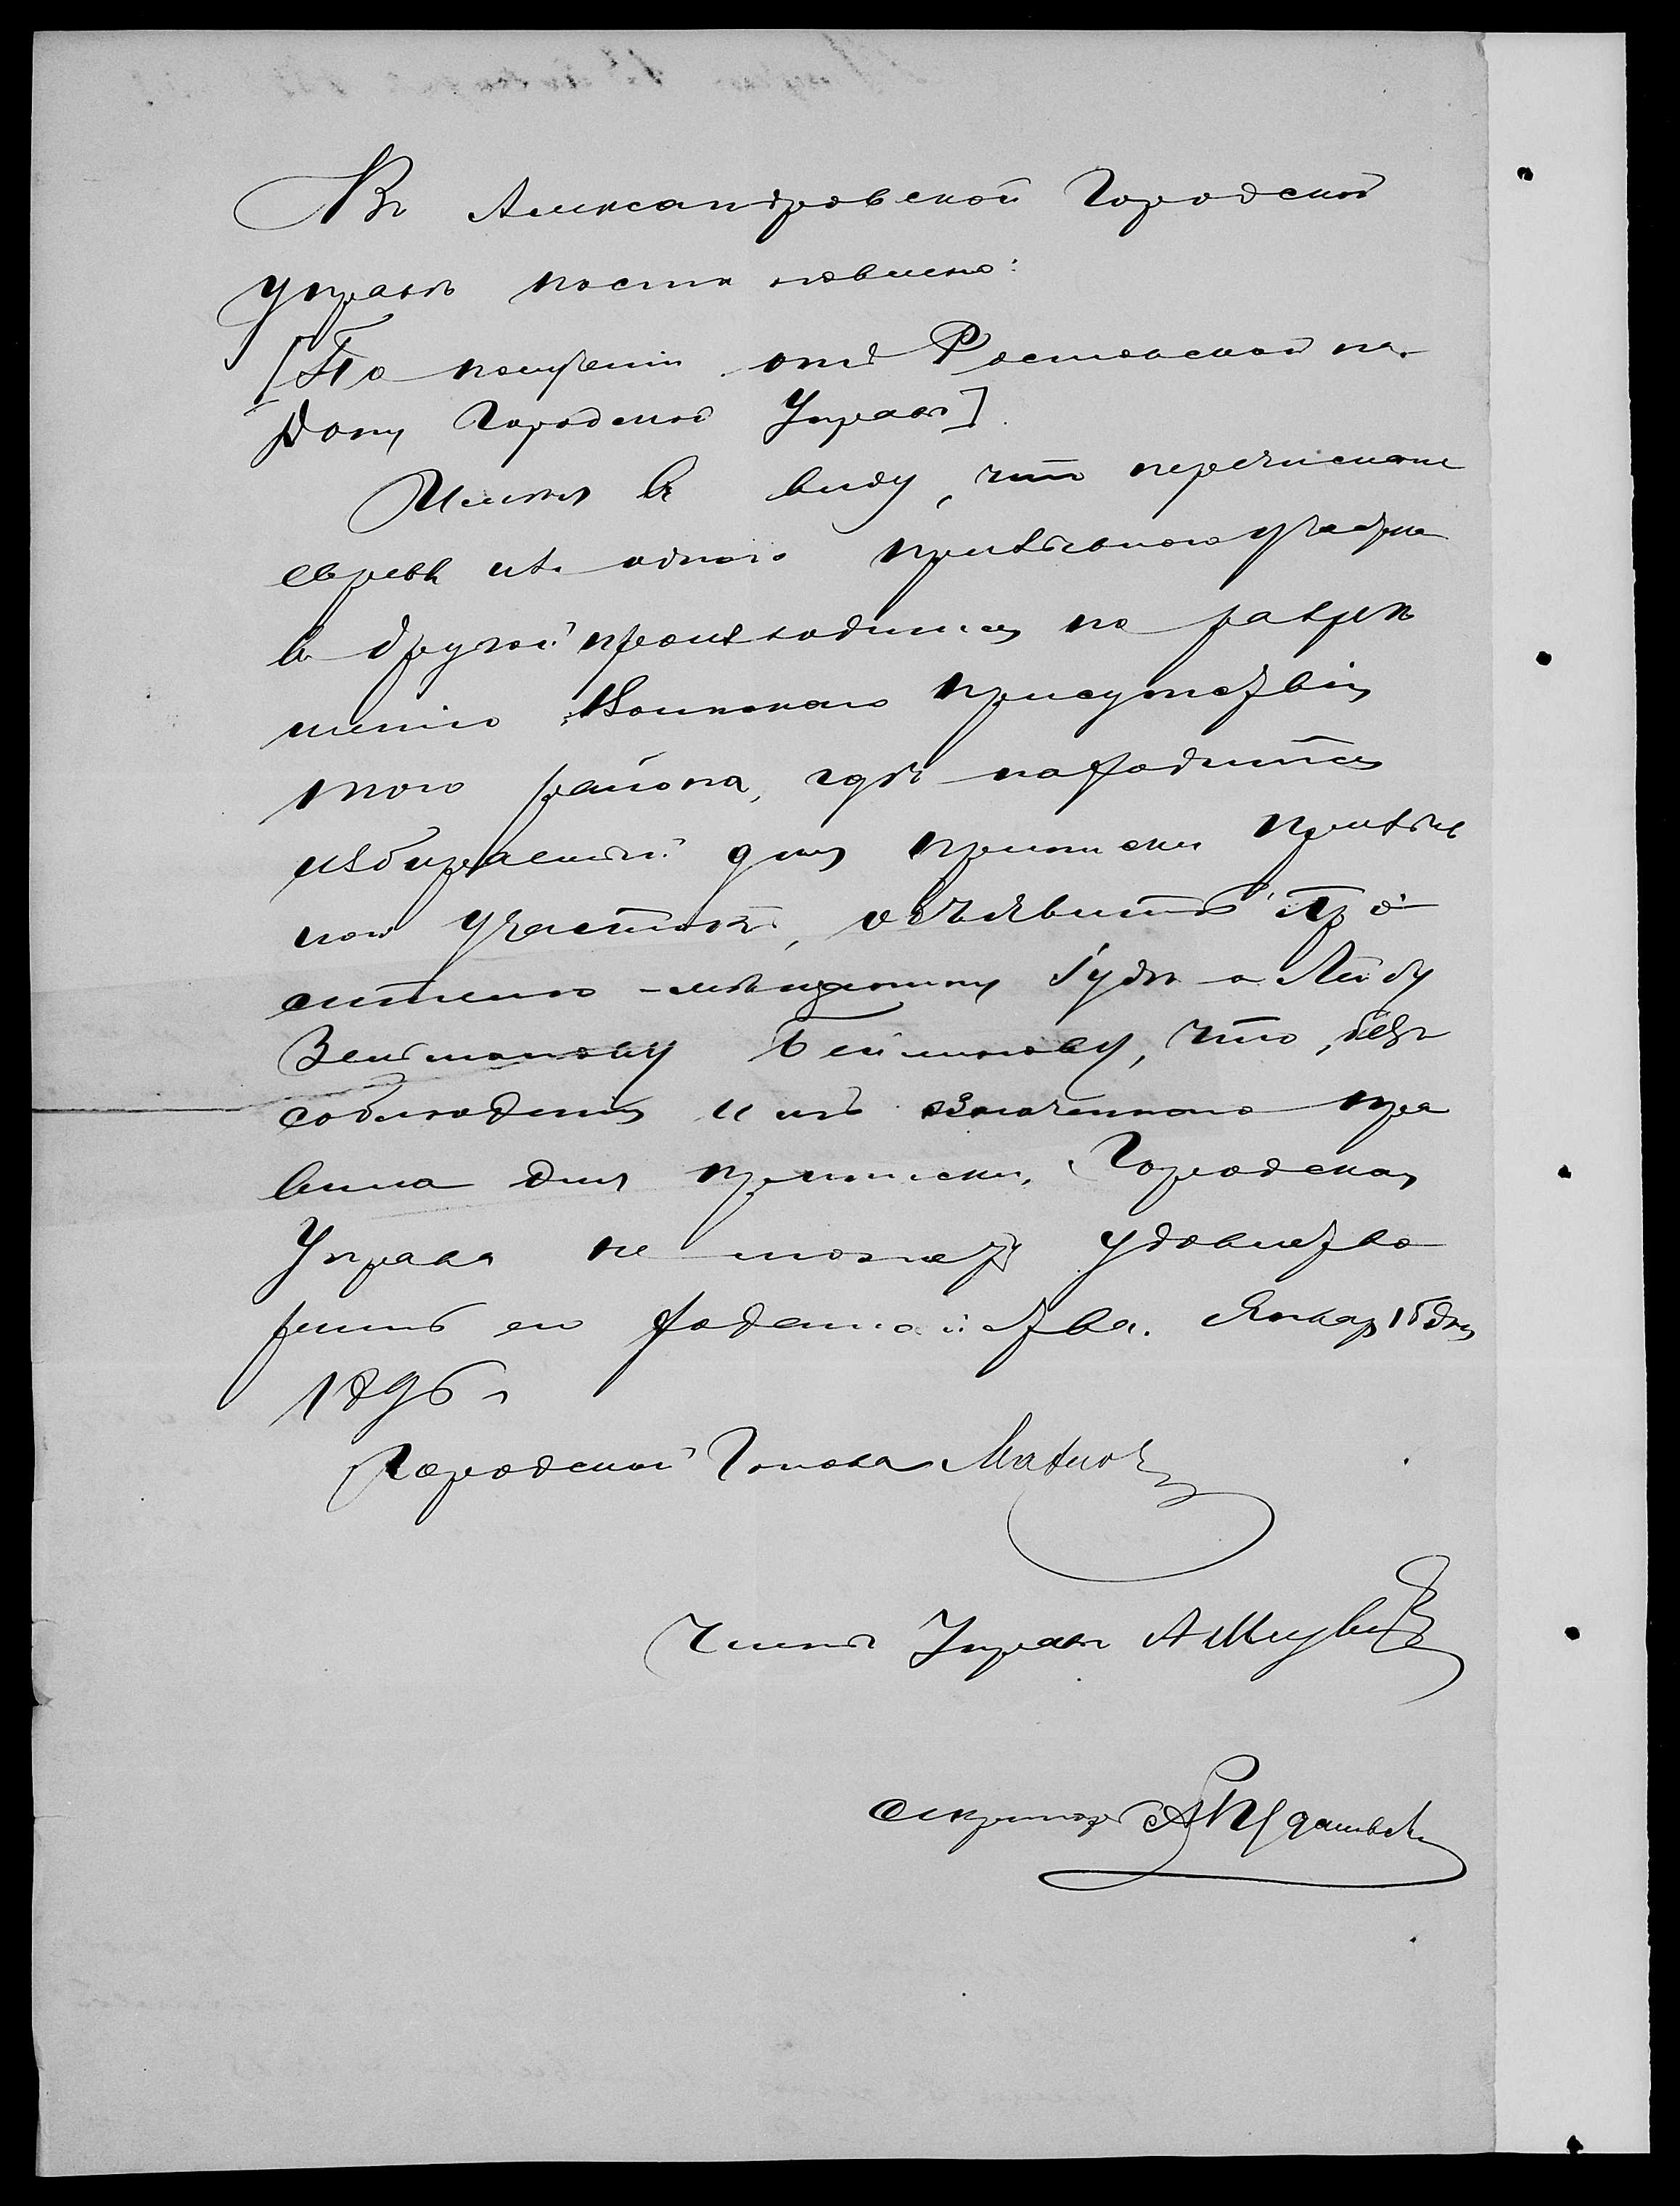 Въ Александровской Городской
управѣ постановлено:
[По порученію отъ Ростовской на
Дону Городской Управы]
Имѣя въ виду, что перечисленіе
евреевъ изъ одного призывного участка
въ другой производится по разрѣ
шенію Воинскаго присутствія
того района, гдѣ находится
избираемый для приписки призыв
ной участокъ, объявить про
сителю – мѣщанину Іудѣ – Лейбу
Зельмановичу, что, безъ
соблюденія имъ означеннаго пра
вила для приписки, Городская
Управа не можетъ удовлетво
рить его ходатайства. Января 15 дня
1896 г
Городской Голова
Членъ Управы
Секретарь